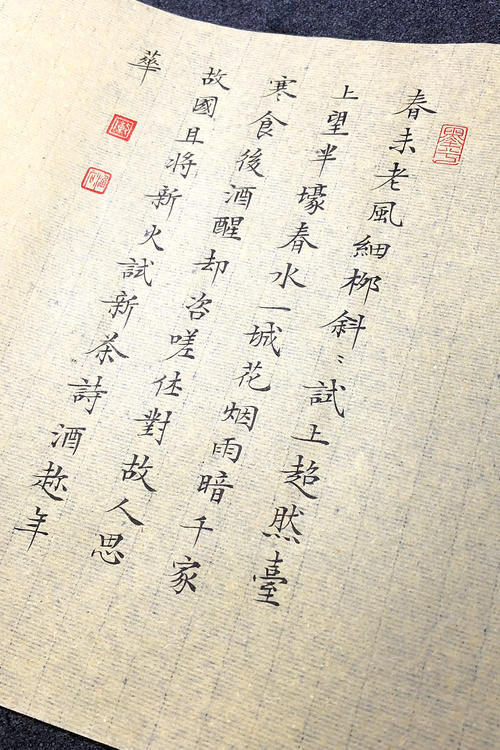 春未老風細栁斜〻試上超然臺
上望半壕春水一城花烟雨暗千家
寒食後酒醒却咨嗟休對故人思
故國且將新火試新茶詩酒趂年
華